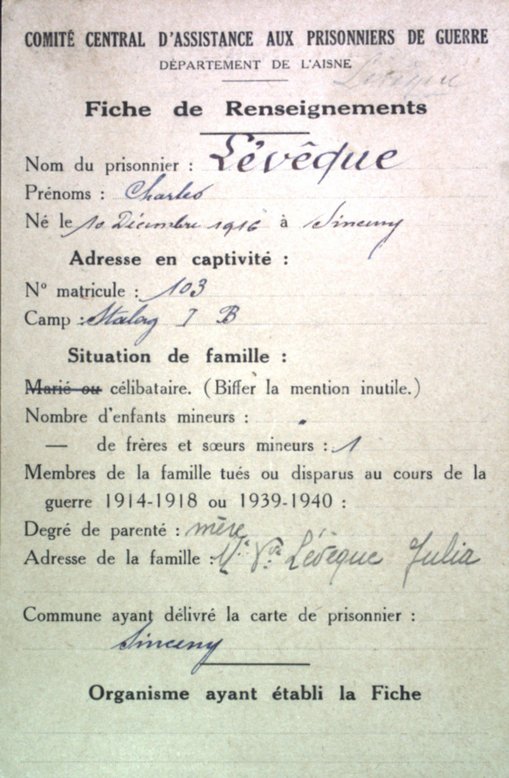 COMITÉ CENTRAL D'ASSISTANCE AUX PRISONNIERS DE GUERRE
DÉPARTEMENT DE L'AISNE
Lévêque
Fiche de Renseignements
Nom du prisonnier : Lévêque
Prénoms : Charles
Né le 10 Décembre 1916 à Sinceny
Adresse en captivité :
N° matricule : 103
Camp : Stalag I B
Situation de famille :
Marié ou célibataire. (Biffer la mention inutile.)
Nombre d'enfants mineurs :
— de frères et sœurs mineurs : 1
Membres de la famille tués ou disparus au cours de la
guerre 1914-1918 ou 1939-1940 :
Degré de parenté : mère
Adresse de la famille : Mᵉ Vᵛᵉ Lévêque Julia
Commune ayant délivré la carte de prisonnier :
Sinceny
Organisme ayant établi la Fiche